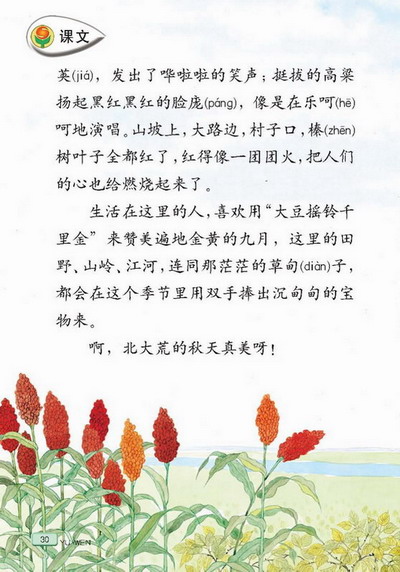 课文
英(jiá)，发出了哗啦啦的笑声；挺拔的高粱
扬起黑红黑红的脸庞(páng)，像是在乐呵(hē)
呵地演唱。山坡上，大路边，村子口，榛(zhēn)
树叶子全都红了，红得像一团团火，把人们
的心也给燃烧起来了。
生活在这里的人，喜欢用“大豆摇铃千
里金”来赞美遍地金黄的九月，这里的田
野、山岭、江河，连同那茫茫的草甸(diàn)子，
都会在这个季节里用双手捧出沉甸甸的宝
物来。
啊，北大荒的秋天真美呀！
30
YU WEN